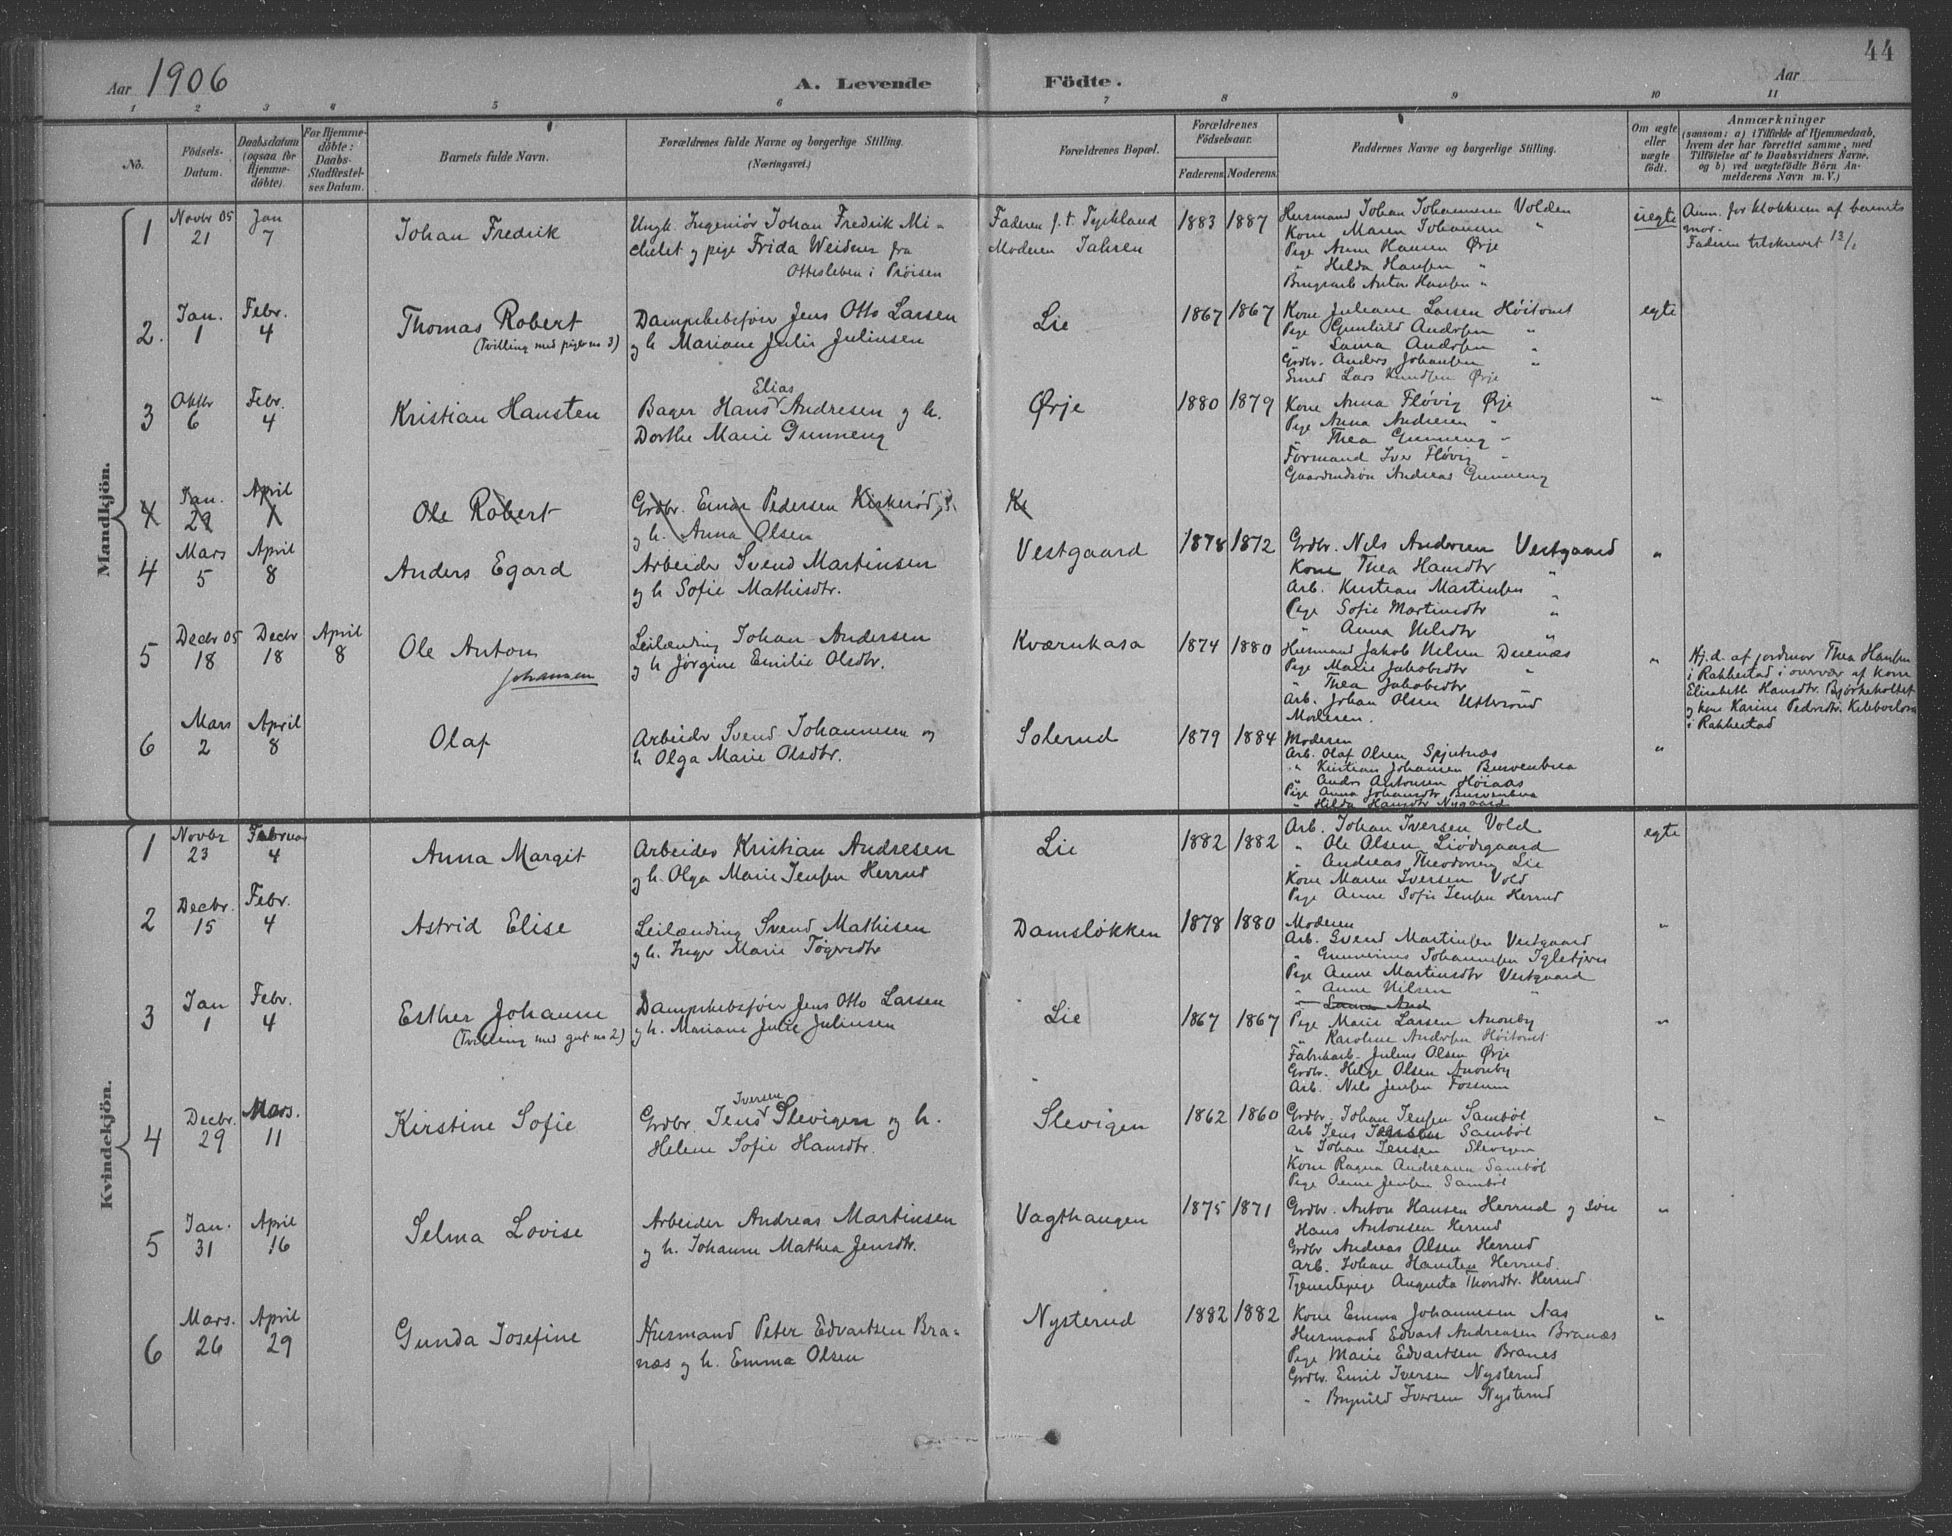 44
Aar 1906 A. Levende Födte. Aar
1 2 3 4 5 6 7 8 9 10 11
No.
Födsels-Datum.
Daabsdatum (ogsaa for Hjemmedöbte).
For Hjemmedöbte: Daabs-Stadfæstelses Datum.
Barnets fulde Navn.
Forældrenes fulde Navne og borgerlige Stilling.
(Næringsvei.)
Forældrenes Bopæl.
Forældrenes Födselsaar.
Faderens. Moderens.
Faddernes Navne og borgerlige Stilling.
Om ægte eller uægte födt.
Anmærkninger
(saasom: a) i Tilfælde af Hjemmedaab,
hvem der har forrettet samme, med
Tilföielse af to Daabsvidners Navne,
og b) ved uægtefödte Börn An-
melderens Navn m. V.)
Mandkjön.
1 Novbr 05 21 Jan 7 Johan Fredrik
Ungk. Ingeniør Johan Fredrik Mi-
chelet og pige Frida Weidner fra
Ottesleben i Prøisen
Faderen f. t. Tyskland
Moderen Jahren
1883 1887
Husmand Johan Johannesen Volden
Kone Maren Johannesen "
Pige Anna Hansen Ørje
" Hilda Hansen "
Anton Hansen "
uegte
Anm. for klokkeren af barnets
mor.
Faderen tilskrevet 13/1
2. Jan. 1 Febr. 4 Thomas Robert
(Tvilling med pige no 3)
Dampskibsfører Jens Otto Larsen
og h. Mariane Julie Juliusen
Lie
1867 1867
Kone Juliane Larsen Høitomt
Pige Gunhild Andersen "
" Laura Andersen "
Grdbr. Anders Johansen "
Smed Lars Knudsen Ørje
egte
3 Oktbr 6 Febr. 4 Kristian Hansten
Elias
Bager Hans Andresen og h.
Dorthe Marie Gunneng
Ørje
1880 1879
Kone Anna Fløvig Ørje
Pige Anna Andresen "
" Thea Gunneng "
Formand Iver Fløvig "
Gaardmdsøn Andreas Gunneng
"
4 Jan. 29 April 1 Ole Robert
Grdbr. Einar Pedersen Kirkerød
og h. Anna Olsen
Ki
4 Mars 5 April 8 Anders Egard
Arbeider Svend Martinsen
og h Sofie Mathisdtr.
Vestgaard
1878 1872
Grdbr. Nils Andersen Vestgaard
Kone Thea Hansdtr "
Arb. Kristian Martinsen "
Pige Sofie Martinsdtr "
" Anna Nilsdtr "
"
5 Decbr 05 18 Decbr 18 April 8 Ole Anton
Johansen
Leilænding Johan Andersen
og h Jørgine Emilie Olsdtr.
Kværnkasa
1874 1880
Husmand Jakob Nilsen Duenæs
Pige Marie Jakobsdtr "
" Thea Jakobsdtr "
Arb. Johan Olsen
Moderen.
"
Hj.d. af jordmor Thea Hansen
i Rakkestad i overvær af kone
Elisabeth Hansdtr. Bjørkeholtet
og kone Karine Pedersdtr.
i Rakkestad
6 Mars 2 April 8 Olaf
Arbeider Svend Johannesen og
h Olga Marie Olsdtr.
Solerud
1879 1884
Moderen
Arb. Olaf Olsen Spjutnæs
" Kristian Johansen
" Anders Antonsen Høiaas
Pige Anna Johansdtr
" Hilda Hansdtr Nygaard
"
Kvindekjön.
1 Novbr 23 Februar 4 Anna Margit
Arbeider Kristian Andresen
og h. Olga Marie Jensen Herrud
Lie
1882 1882
Arb. Johan Iversen Vold
" Ole Olsen Liødegaard
" Andreas Theodorsen Lie
Kone Maren Iversen Vold
Pige Anne Sofie Jensen Herrud
egte
2 Decbr. 15 Febr. 4 Astrid Elise
Leilænding Svend Mathisen
og h. Inger Marie Tøgersdtr
Damsløkken
1878 1880
Moderen
Arb. Svend Martinsen Vestgaard
" Gunnerius Johannesen Igletjern
Pige Anne Martinsdtr Vestgaard
" Anne Nilsen "
" Laura And
"
3 Jan 1 Febr. 4 Esther Johanne
(Tvilling med gut no 2)
Dampskibsfører Jens Otto Larsen
og h. Mariane Julie Juliusen
Lie
1867 1867
Pige Marie Larsen Anonby
" Karoline Andersen Høitomt
Fabrikarb. Julius Olsen Ørje
Grdbr. Helge Olsen Anonby
Arb. Nils Jensen Fossum
"
4 Decbr. 29 Mars. 11 Kirstine Sofie
Iversen
Grdbr. Jens Slevigen og h.
Helene Sofie Hansdtr.
Slevigen
1862 1860
Grdbr. Johan Jensen Sambøl
Arb Jens Sambøl
" Johan Jensen Slevigen
Kone Ragna Andreasen Sambøl
Pige Anne Jensen Sambøl
"
5 Jan. 31 April 16 Selma Lovise
Arbeider Andreas Martinsen
og h. Johanne Mathea Jensdtr.
Vagthaugen
1875 1871
Grdbr. Anton Hansen Herrud og søn
Hans Antonsen Herrud
Grdbr Andreas Olsen Herrud
Arb. Johan Hansten Herrud.
Tjenestepige Augusta Thorsdtr. Herrud.
"
6 Mars. 26 April 29 Gunda Josefine
Husmand Peter Edvartsen Bra-
næs og h. Emma Olsen
Nysterud
1882 1882
Kone Emma Johannesen Aas
Husmand Edvart Andreasen Branæs
Pige Marie Edvartsen Branes
Grdbr. Emil Iversen Nysterud
" Brynild Iversen Nysterud
"